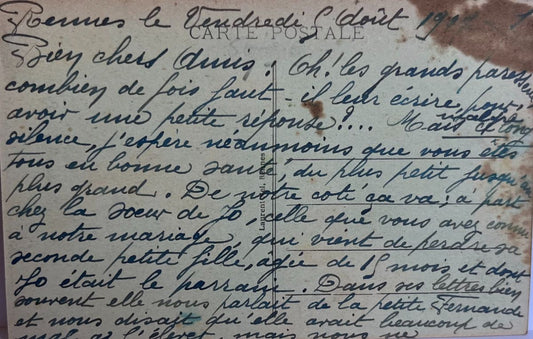 Rennes le Vendredi 5 Août
CARTE POSTALE
Bien chers Amis. Oh! les grands paresseux
combien de fois faut-il leur écrire pour
avoir une petite réponse?... Mais malgré ce long
silence, j'espère néanmoins que vous êtes
tous en bonne santé, du plus petit jusqu'au
plus grand. De notre coté ça va; à part
chez la soeur de Jo, celle que vous avez connue
à notre mariage, qui vient de perdre sa
seconde petite fille, agée de 15 mois et dont
Jo était le parrain. Dans ses lettres bien
souvent elle nous parlait de la petite Fernande
et nous disait qu'elle avait beaucoup de
mal à l'élever, mais nous ne
Laurent-Nel, Rennes